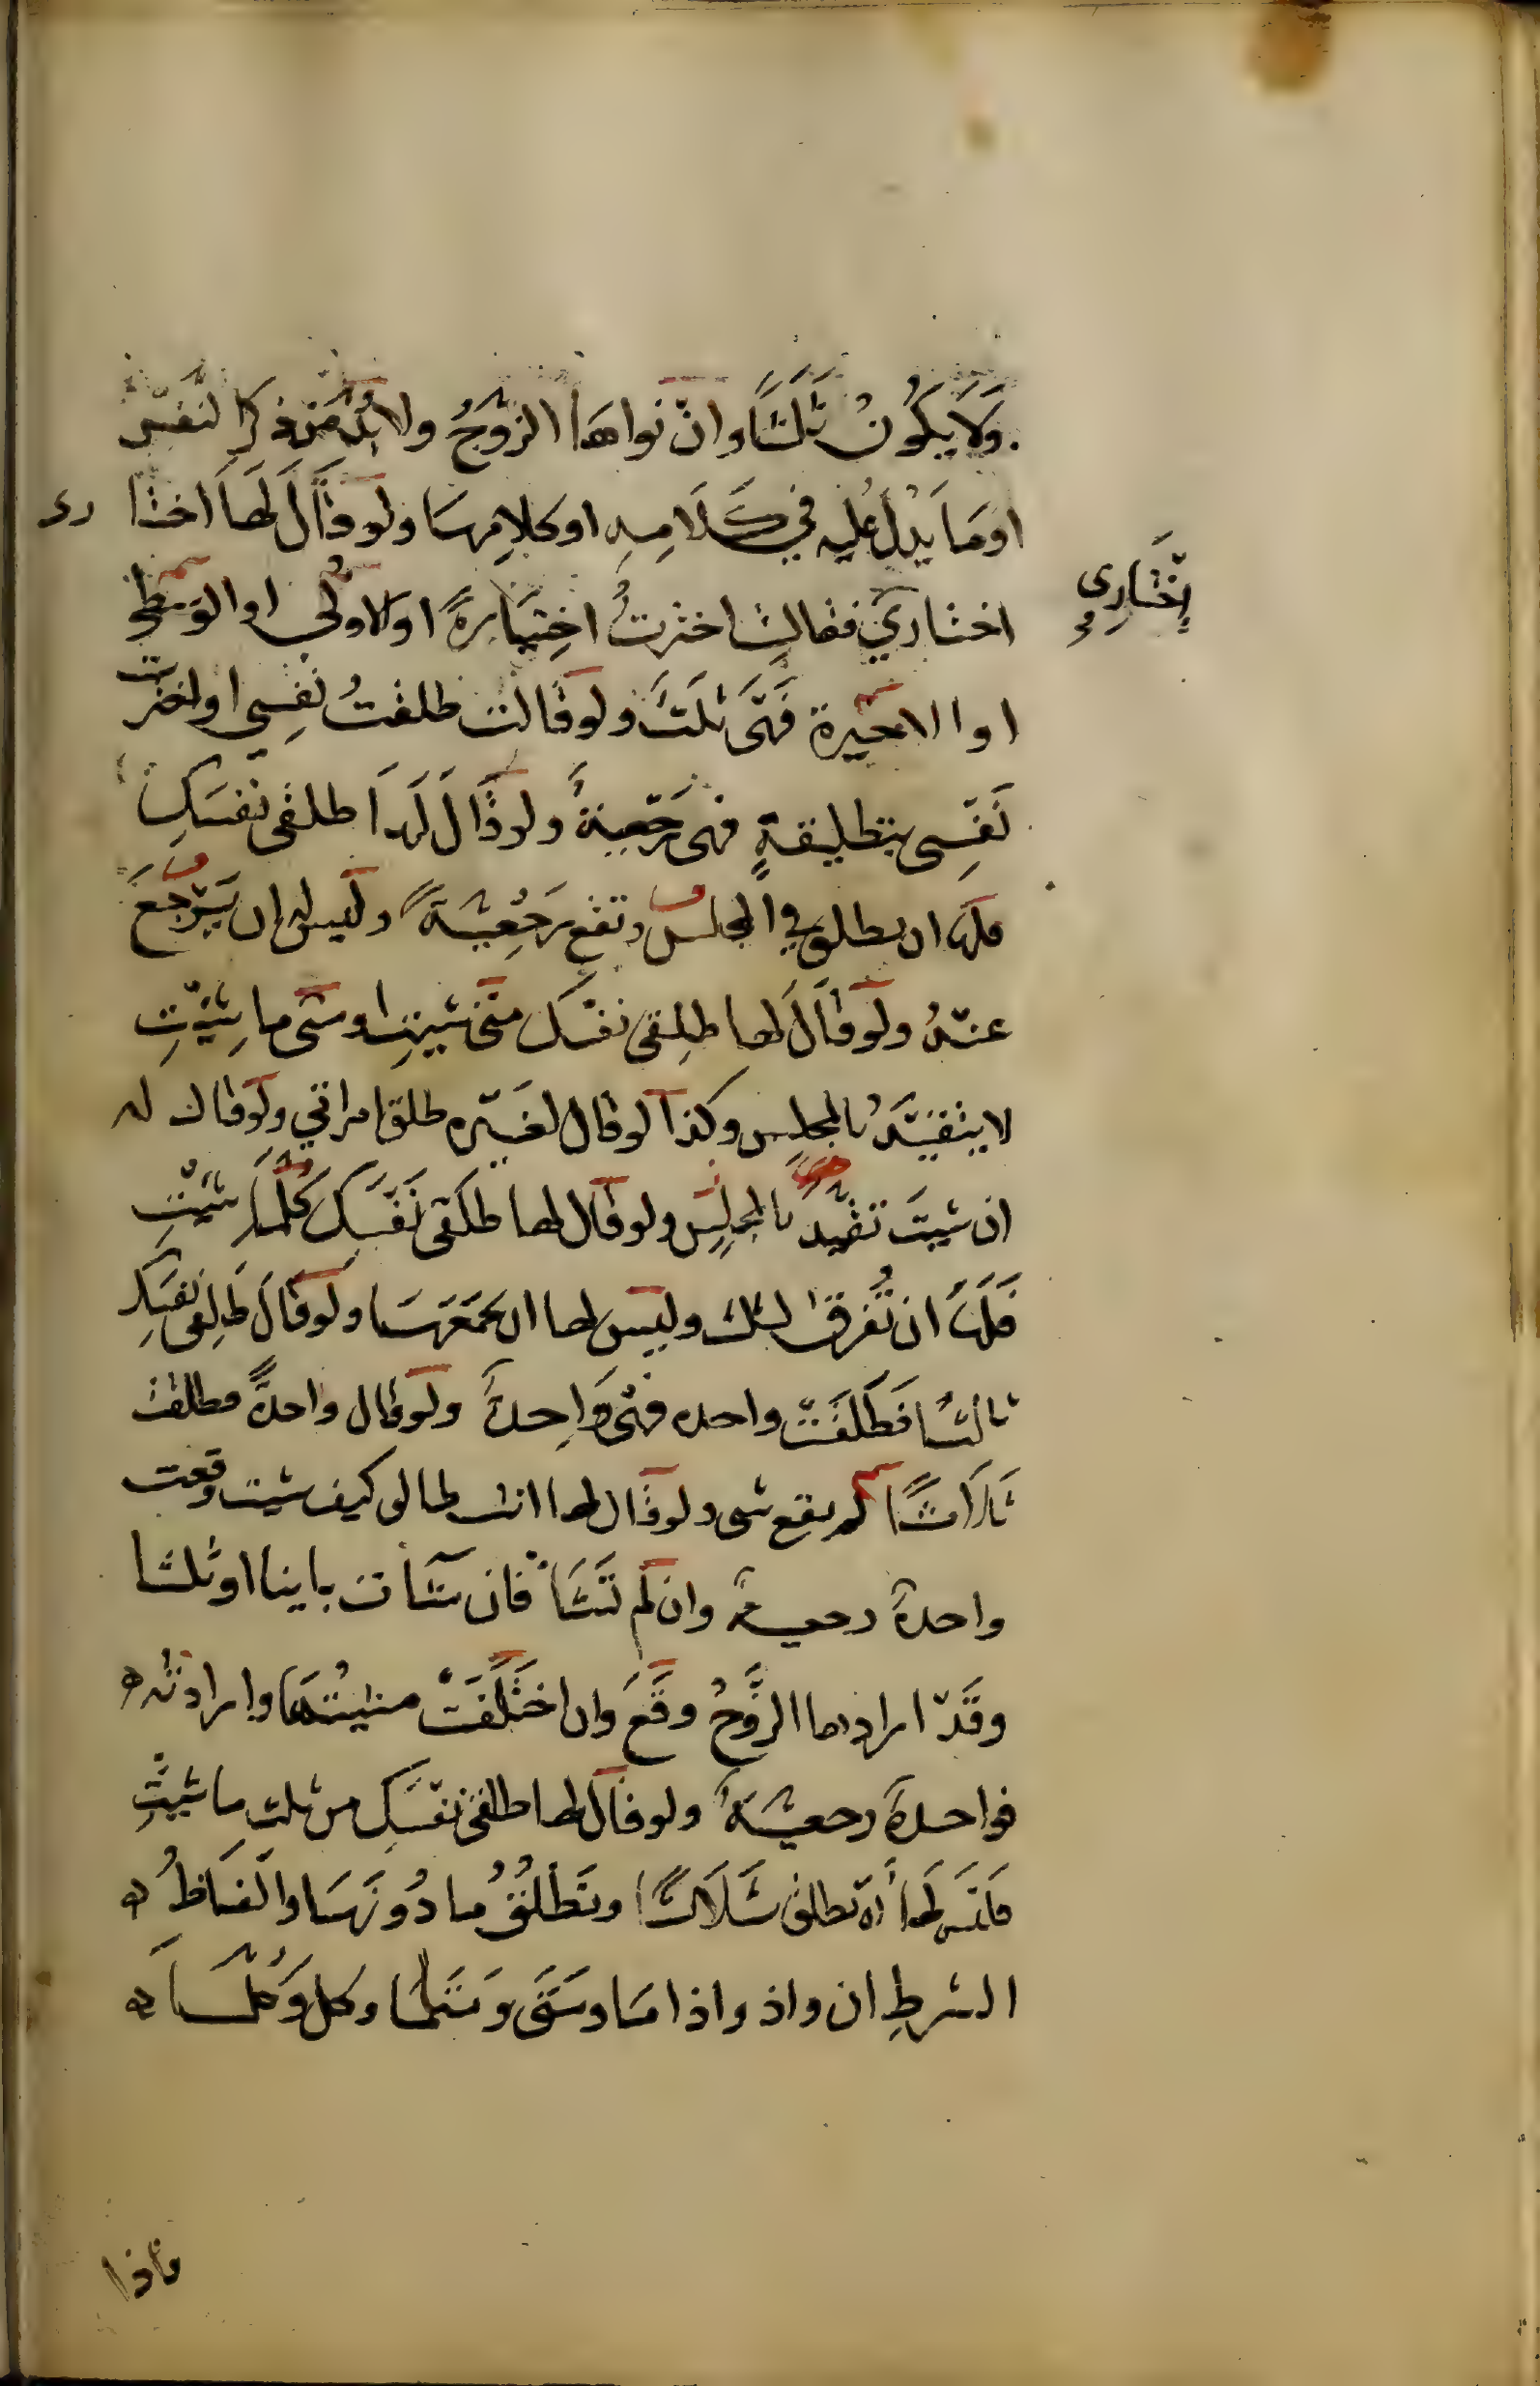 ولا يكون ثلثا وان نواها الزوج ولا بد من ذكر النفس
او ما يدل عليه في كلامه او كلامها ولو قال لها اختا رى
اختارى
اختاري فقالت اخترت اختيارة او الاولى او الوسطى
او الاخيرة فهى ثلث ولو قالت طلقت نفسي او اخترت
نفسى بتطليقة فهى رجعية ولو قال لها طلقى نفسك
فلها ان تطلق في المجلس وتقع رجعية وليس له ان يرجع
عنه ولو قال لها طلقى نفسك متى شيت او متى ما شيت
لا يتقيد بالمجلس وكذا لو قال لغيره طلق امراتي ولو قال له
ان شيت تقيد بالمجلس ولو قال لها طلقى نفسك كلما شيت
فلها ان تفرق الثلث وليس لها ان تجمعها ولو قال طلقى نفسك
ثالثا فطلقت واحده فهى واحدة ولو قال واحدة فطلقت
ثلاثا لم يقع شى ولو قال لها انت طالق كيف شيت وقعت
واحدة رجعية وان لم تشأ فان شات باينا او ثلثا
وقد ارادها الزوج وقع وان اختلفت مشيتها وارادته
فواحدة رجعية ولو قال لها طلقى نفسك من ثلث ما شيت
فليس لها ان تطلق ثلاثا وتطلق ما دونها والفاظ
الشرط ان واذ واذا ما ومتى ومتما وكل وكلما
فاذا